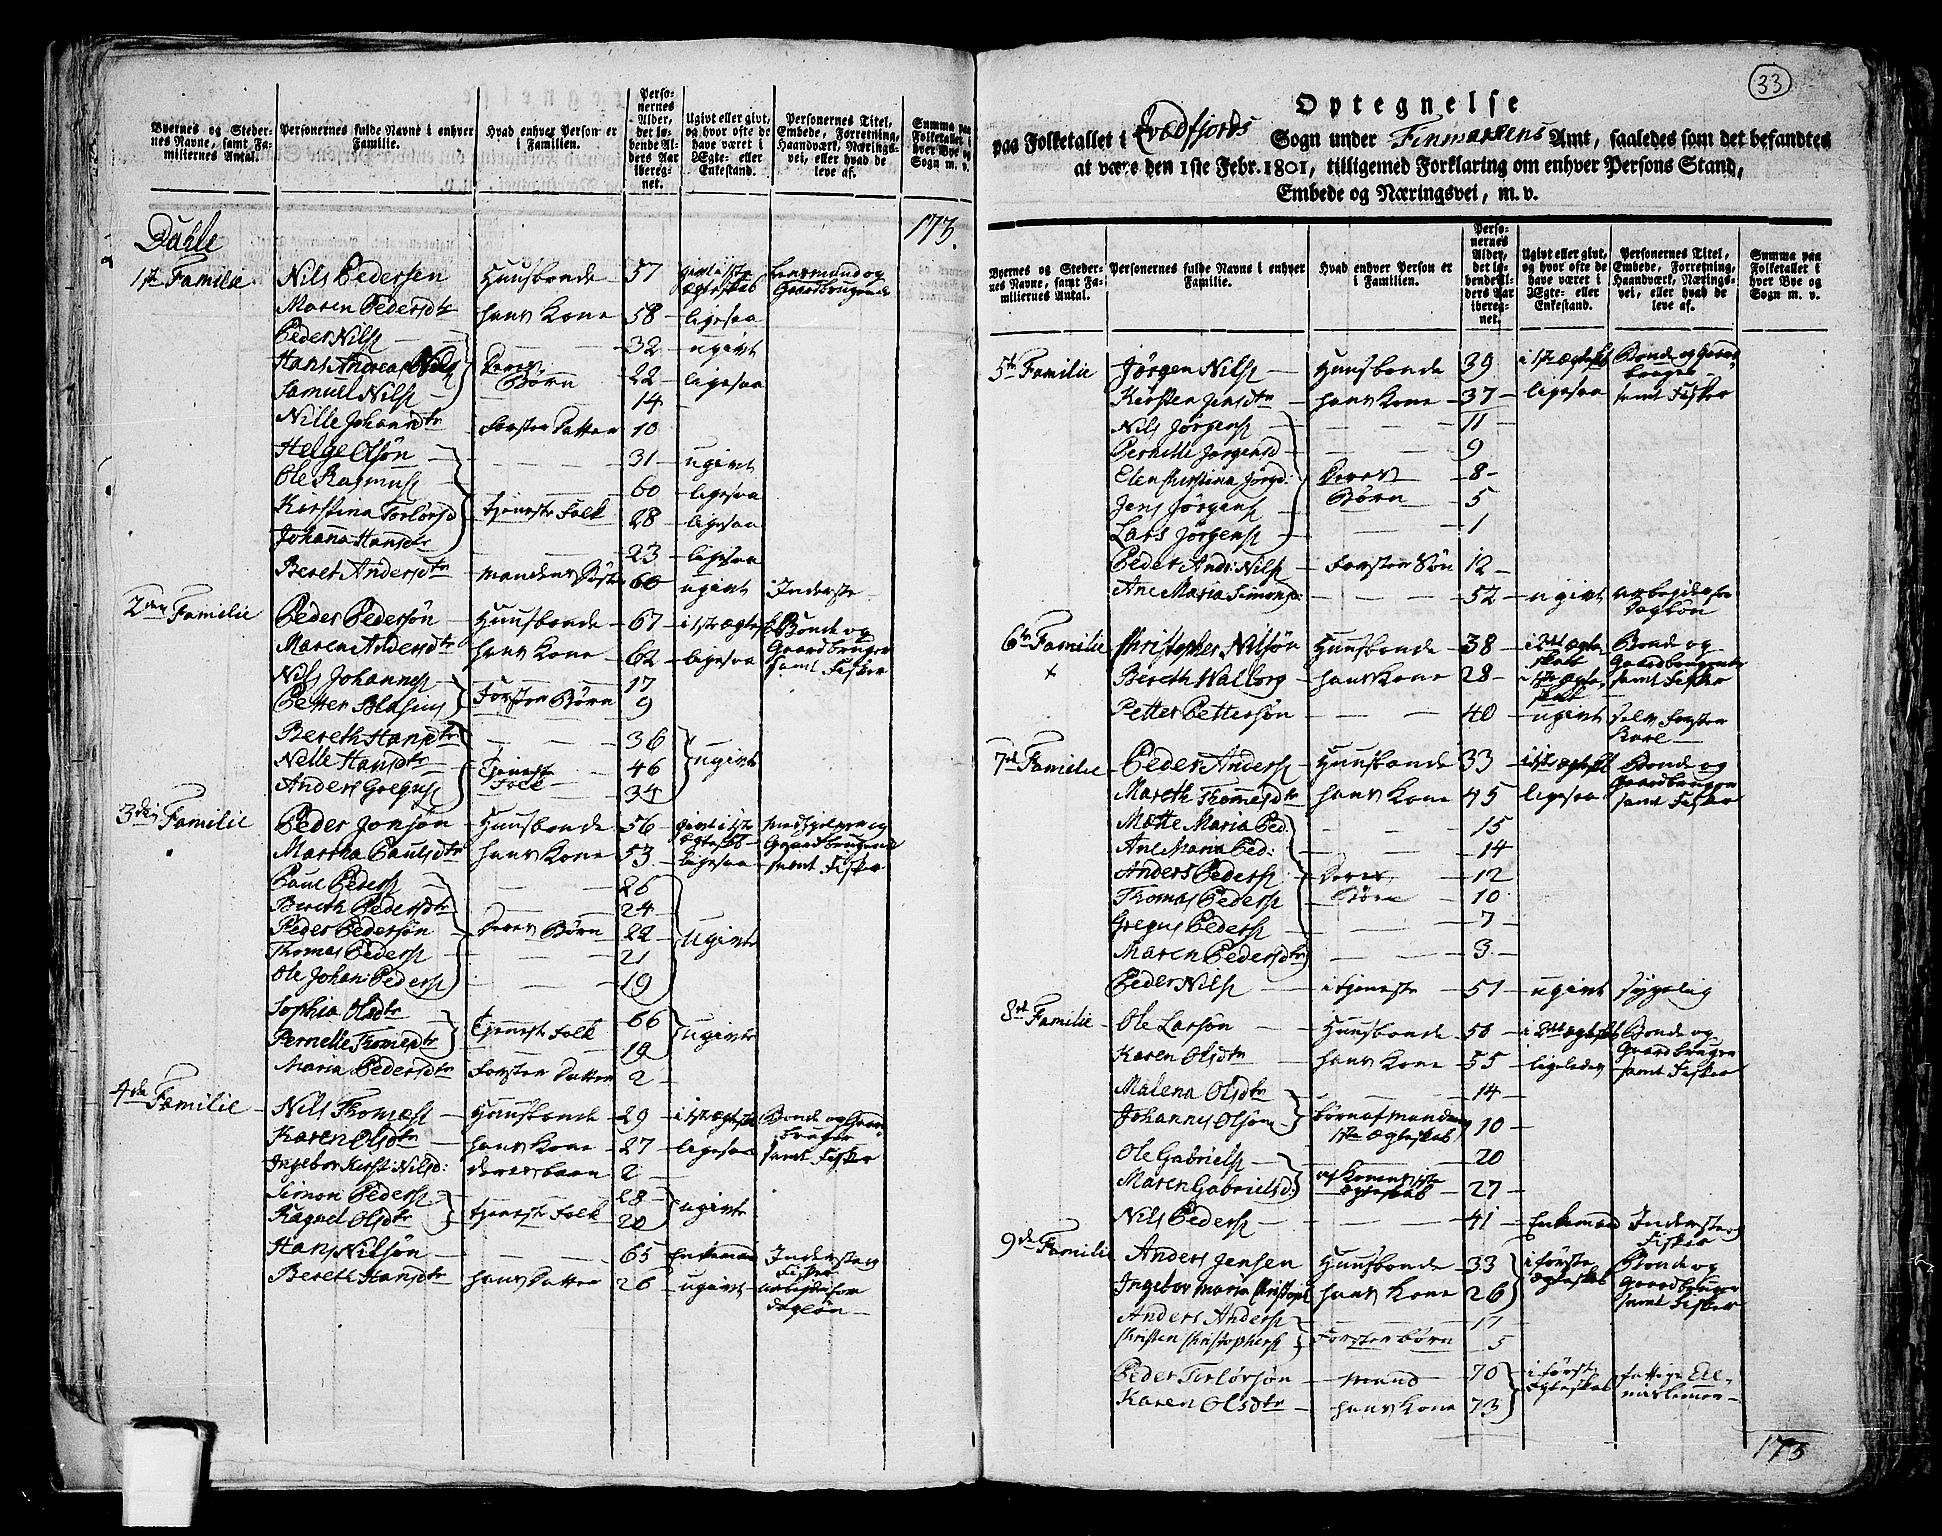 Byernes og Stedernes Navne, samt Familiernes Antal. | Personernes fulde Navne i enhver Familie. | Hvad enhver Person er i Familien. | Personernes Alder, det løbende Alders Aar iberegnet. | Ugivt eller givt, og hvor ofte de have været i Ægte- eller Enkestand. | Personernes Titel, Embede, Forretning, Haandværk, Næringsvei, eller hvad de leve af. | Summa paa Folketallet i hver Bye og Sogn m. v.
173.
Dahle
1ste Familie Nils Pedersen Huusbonde 57 givt i 1ste Ægteskab Lensmand og Gaardbrugende
Maren Pedersdtr hans Kone 58 ligesaa
Peder Nilss 32 ugivt
Hans Andreas Nilss Deres Børn 22 ligesaa
Samuel Nilss 14
Nille Johansdtr Foster Datter 10
Helge Olsøn 31 ugivt
Ole Rasmuss 60 ligesaa
Kirstina Torlørsd Tjeneste Folk 28 ligesaa
Johana Hansdtr 23 ligesaa
Beret Andersdtr Mandens Søster 60 ugivt Inderste
2den Familie Peder Pedersøn Huusbonde 67 i 1ste Ægtesk. Bonde og
Maren Andersdtr hans Kone 62 ligesaa Gaardbruger samt Fisker
Nils Johanness 17
Petter Blasius Foster Børn 9
Bereth Hansdtr 36
Nelle Hansdtr Tjeneste Folk 46 ugivt
Anders Greguss 34
3die Familie Peder Jonsøn Huusbonde 56 givt i 1ste Ægteskab Gaardbrugende
Martha Paulsdtr hans Kone 53 ligesaa samt Fisker
Paul Pederss 26
Bereth Pedersdtr 24
Peder Pedersøn Deres Børn 22 ugivte
Thomas Pederss 21
Ole Johan Pederss 19
Sophia Olsdtr 66
Pernelle Thomesdtr Tjeneste Folk 19 ugivte
Maria Pedersdtr Foster Datter 2
4de Familie Nils Thomæss Huusbonde 29 i 1ste Ægtesk Bonde og Gaardbruger
Karen Olsdtr hans Kone 27 ligesaa samt Fisker
Ingebor Kirst: Nilsd: deres barn 2
Simon Pederss 28
Ragnel Olsdtr tjeneste Folk 20 ugivte
Hans Nilsøn 65 Enkemand Inderste og Fisker
Bereth Hansdtr hans Datter 26 ugivt arbejder for Dagløn
33
Optegnelse
paa Folketallet i Qvædfjords Sogn under Finmarkens Amt, saaledes som det befandtes
at være den 1ste Febr. 1801, tilligemed Forklaring om enhver Persons Stand,
Embede og Næringsvei, m. v.
Byernes og Stedernes Navne, samt Familiernes Antal. | Personernes fulde Navne i enhver Familie. | Hvad enhver Person er i Familien. | Personernes Alder, det løbende Alders Aar iberegnet. | Ugivt eller givt, og hvor ofte de have været i Ægte- eller Enkestand. | Personernes Titel, Embede, Forretning, Haandværk, Næringsvei, eller hvad de leve af. | Summa paa Folketallet i hver Bye og Sogn m. v.
5te Familie Jørgen Nilss Huusbonde 39 i 1ste Ægtesk Bonde og Gaardbruger
Kirsten Jensdtr hans Kone 37 ligesaa samt Fisker
Nils Jørgenss 11
Pernille Jørgensd 9
Elen Christina Jørgd: Deres 8
Jens Jørgenss Børn 5
Lars Jørgenss 1
Peder Andr: Nilss Foster Søn 12
Ane Maria Simonsd 52 ugivt arbejder for Dagløn
6te Familie Christopher Nilsøn Huusbonde 38 i 2det Ægteskab Bonde og Gaardbrugende
x Bereth Walborg hans Kone 28 1ste Ægteskab samt Fisker
Petter Pettersøn 40 ugivt
7de Familie Peder Anderss Huusbonde 33 i 1ste Ægtesk Bonde og Gaardbruger
Mareth Thomesdtr hans Kone 45 ligesaa samt Fisker
Mætte Maria Ped: 15
Ane Maria Ped: 14
Anders Pederss Deres 12
Thomas Pederss Børn 10
Gregus Pederss 7
Maren Pedersdtr 3
Peder Nilss i tjeneste 51 ugivt sygelig
8de Familie Ole Larsøn Huusbonde 50 i 2det Ægtesk Bonde og
Karen Olsdtr hans Kone 55 ligeledes Gaardbruger samt Fisker
Malena Olsdtr 14
Johannes Olsøn børn af Mandens 1ste Ægteskab 10
Ole Gabrielss 20
Maren Gabrielsd: af Konens 1ste Ægteskab 27
Nils Pederss 41 Enkemand Inderste og Fisker
9de Familie Anders Jensen Huusbonde 33 i første Ægteskab Bonde og
Ingebor Maria Christophd hans Kone 26 Gaardbruger samt Fisker
Anders Anderss 11
Christen Christopherss Foster børn 5
Peder Torlørsøn Mand 70 i første Ægteskab fattige Almisselemmer
Karen Olsdtr hans Kone 73
173